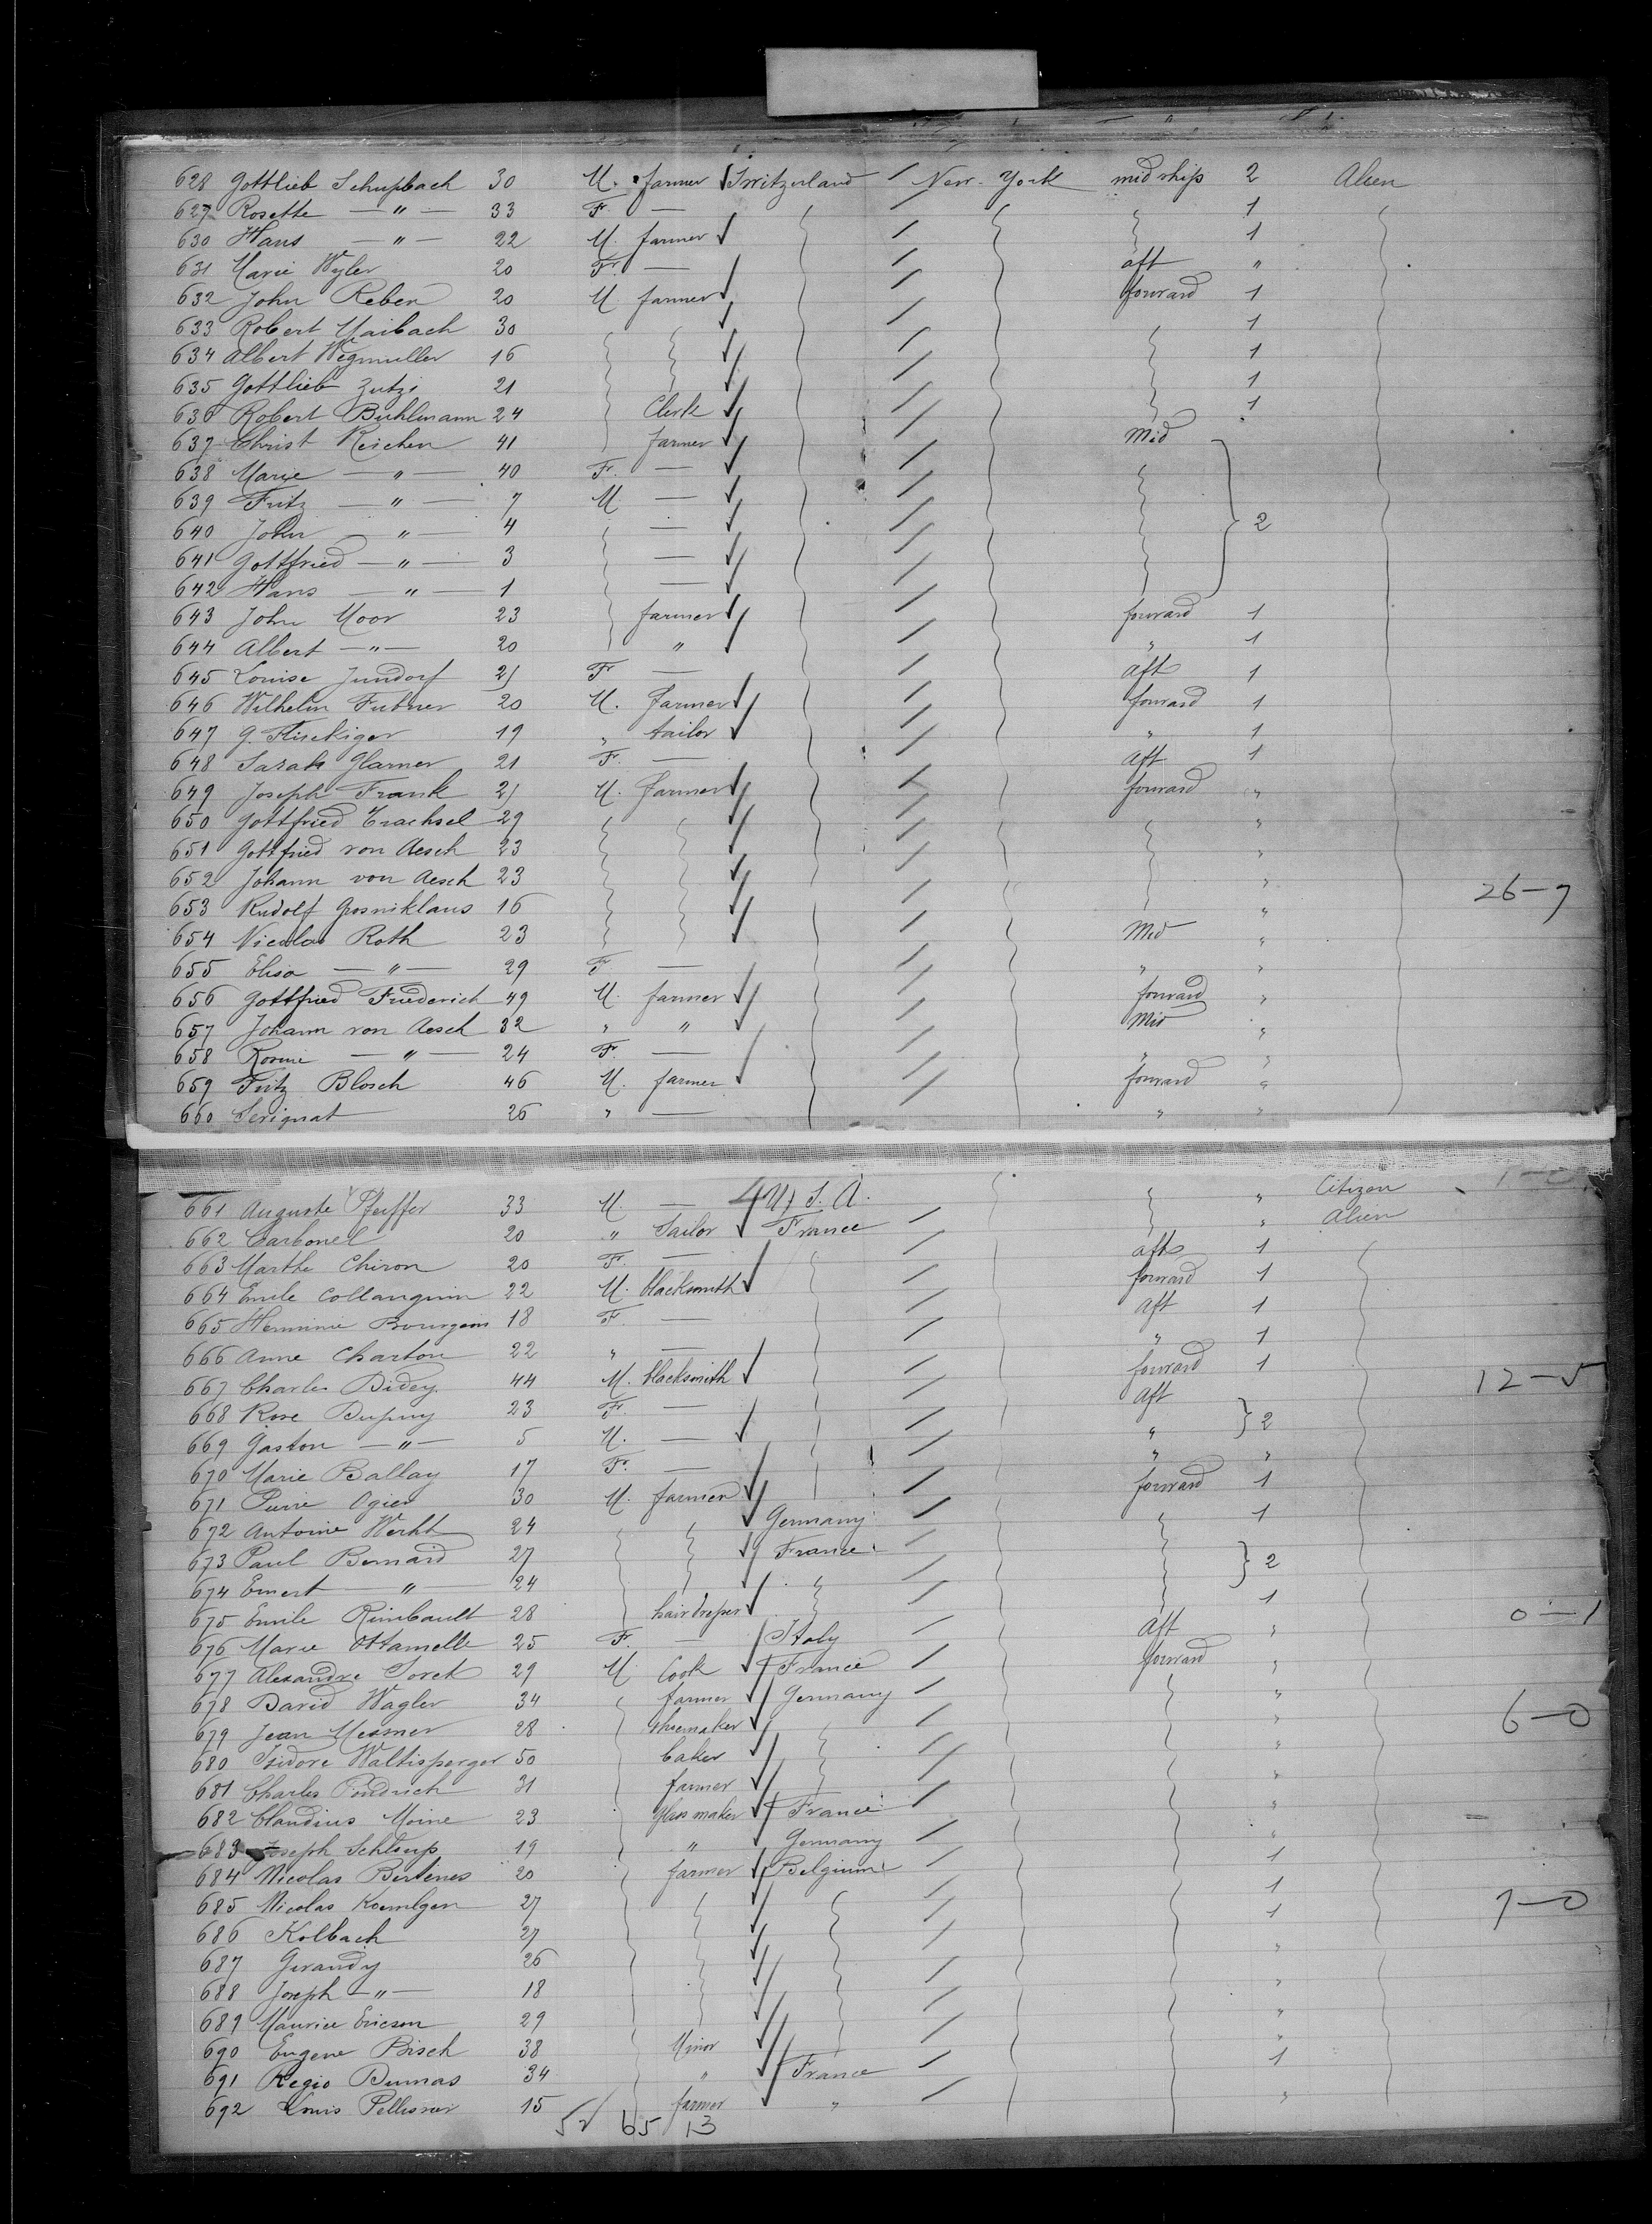 628 Gottlieb Schupbach 30 M. farmer Switzerland / New-York midship 2 Alien
629 Rosette — " — 33 F. — / 1
630 Hans — " — 22 M. farmer / 1
631 Marie Wyler 20 F. — / aft "
632 John Reben 20 M farmer / forward 1
633 Robert Maibach 30 / 1
634 Albert Wegmuller 16 / 1
635 Gottlieb Zutzi 21 / 1
636 Robert Buhlmann 24 Clerk / 1
637 Christ Reichen 41 farmer / Mid
638 Marie — " — 40 F. — /
639 Fritz — " — 7 M — /
640 John — " — 4 — / 2
641 Gottfried — " — 3 — /
642 Hans — " — 1 — /
643 John Moor 23 farmer / forward 1
644 Albert — " — 20 " / " 1
645 Louise Jundorf 21 F — / aft 1
646 Wilhelm Fubner 20 M. farmer / forward 1
647 G. Fluckiger 19 " tailor / " 1
648 Sarah Glarner 21 F. — / aft 1
649 Joseph Frank 21 M. farmer / forward "
650 Gottfried Trachsel 29 / "
651 Gottfried von Aesch 23 / "
652 Johann von Aesch 23 / "
653 Rudolf Grosniklaus 16 / " 26-7
654 Nicolas Roth 23 / Mid "
655 Elisa — " — 29 F — / " "
656 Gottfried Friederich 49 M. farmer / forward "
657 Johann von Aesch 32 " " / Mid "
658 Rosine — " — 24 F. — / " "
659 Fritz Blosch 46 M. farmer / forward "
660 Serignat 26 " — " "
661 Auguste Pfeiffer 33 M. — U. S. A. " Citizen
662 Carbonel 20 " Sailor France / " Alien
663 Marthe Chiron 20 F. — / aft 1
664 Emile Collanguin 22 M. blacksmith / forward 1
665 Hermine Bourgeois 18 F. — / aft 1
666 Anne Charton 22 " — / " 1
667 Charles Didey 44 M. blacksmith / forward 1 12-5
668 Rose Dupuy 23 F. — / aft
669 Gaston — " — 5 M. — / " 2
670 Marie Ballay 17 F. — / " "
671 Pierre Ogier 30 M. farmer / forward 1
672 Antoine Wecht 24 Germany / 1
673 Paul Bernard 27 France /
674 Ernest — " — 24 " / 2
675 Emile Rimbault 28 hairdresser / 1
676 Marie Ottamelle 25 F. — Italy / aft " 0-1
677 Alexandre Soret 29 M Cook France / forward "
678 David Wagler 34 farmer Germany / "
679 Jean Messmer 28 shoemaker / " 6-0
680 Isidore Waltisperger 50 baker / "
681 Charles Pondrich 31 farmer / "
682 Claudius Moine 23 glass maker France / "
683 Joseph Schloup 19 " Germany / "
684 Nicolas Bertenes 20 farmer Belgium / 1
685 Nicolas Koemlgen 27 / 1 7-0
686 Kolbach 27 / 1
687 Girandy 26 / "
688 Joseph — " — 18 / "
689 Maurice Ericson 29 / "
690 Eugene Bisch 38 Minor / "
691 Regis Dumas 34 " France / 1
692 Louis Pellissier 15 farmer " / "
52 65 13